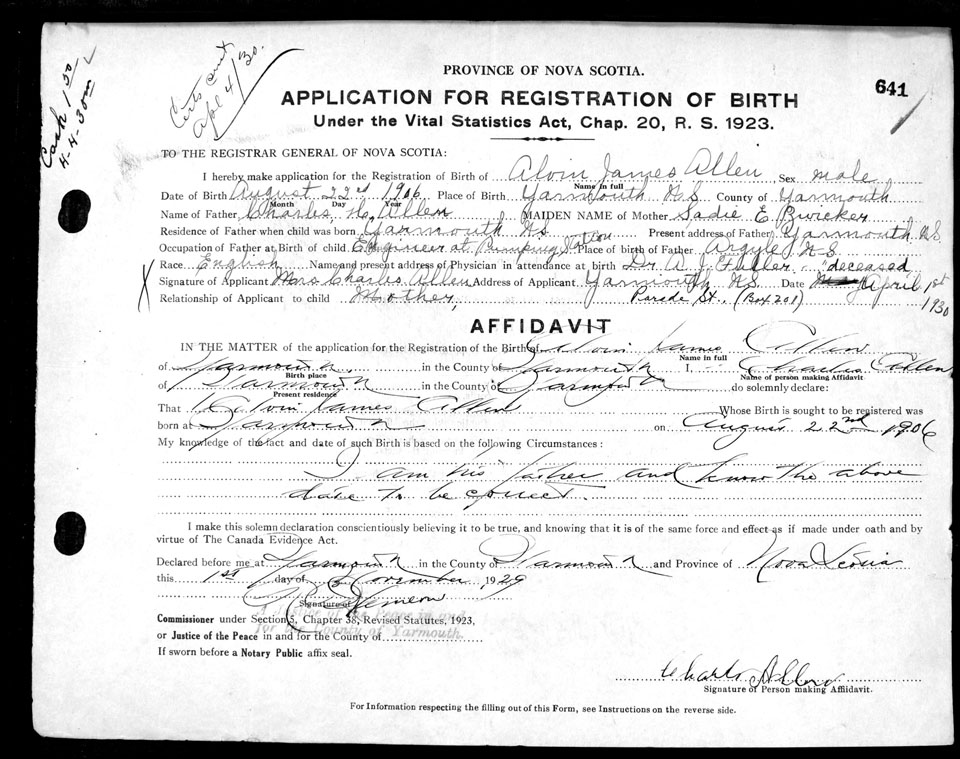 Certs sent
Apl 4/30.
Cash 1 50
4-4-30
PROVINCE OF NOVA SCOTIA.
641
APPLICATION FOR REGISTRATION OF BIRTH
Under the Vital Statistics Act, Chap. 20, R. S. 1923.
TO THE REGISTRAR GENERAL OF NOVA SCOTIA:
I hereby make application for the Registration of Birth of Alvin James Allen Sex male
Name in full
Date of Birth August 22nd 1906 Place of Birth Yarmouth N.S County of Yarmouth
Month Day Year
Name of Father Charles H. Allen MAIDEN NAME of Mother Sadie E
Residence of Father when child was born Yarmouth N.S Present address of Father Yarmouth N.S
Occupation of Father at Birth of child Engineer at Pumping Station Place of birth of Father Argyle N.S
Race English Name and present address of Physician in attendance at birth Dr A. J. Fuller "deceased
X Signature of Applicant Mrs Charles Allen Address of Applicant Yarmouth N.S Date April 1st
Relationship of Applicant to child Mother, Parade St., (Box 201) 1930
AFFIDAVIT
IN THE MATTER of the application for the Registration of the Birth of Alvin James Allen
Name in full
of Yarmouth in the County of Yarmouth I. Charles Allen
Birth place Name of person making Affidavit
of Yarmouth in the County of Yarmouth do solemnly declare:
Present residence
That Alvin James Allen Whose Birth is sought to be registered was
born at Yarmouth on August 22nd 1906
My knowledge of the fact and date of such Birth is based on the following Circumstances:
I am his father and know the above
date to be correct.
I make this solemn declaration conscientiously believing it to be true, and knowing that it is of the same force and effect as if made under oath and by
virtue of The Canada Evidence Act.
Declared before me at Yarmouth in the County of Yarmouth and Province of Nova Scotia
this 1st day of November 1929
Signature of
A Justice of the Peace in and
for the County of Yarmouth.
Commissioner under Section 5, Chapter 38, Revised Statutes, 1923,
or Justice of the Peace in and for the County of
If sworn before a Notary Public affix seal.
Charles Allen
Signature of Person making Affidavit.
For Information respecting the filling out of this Form, see Instructions on the reverse side.